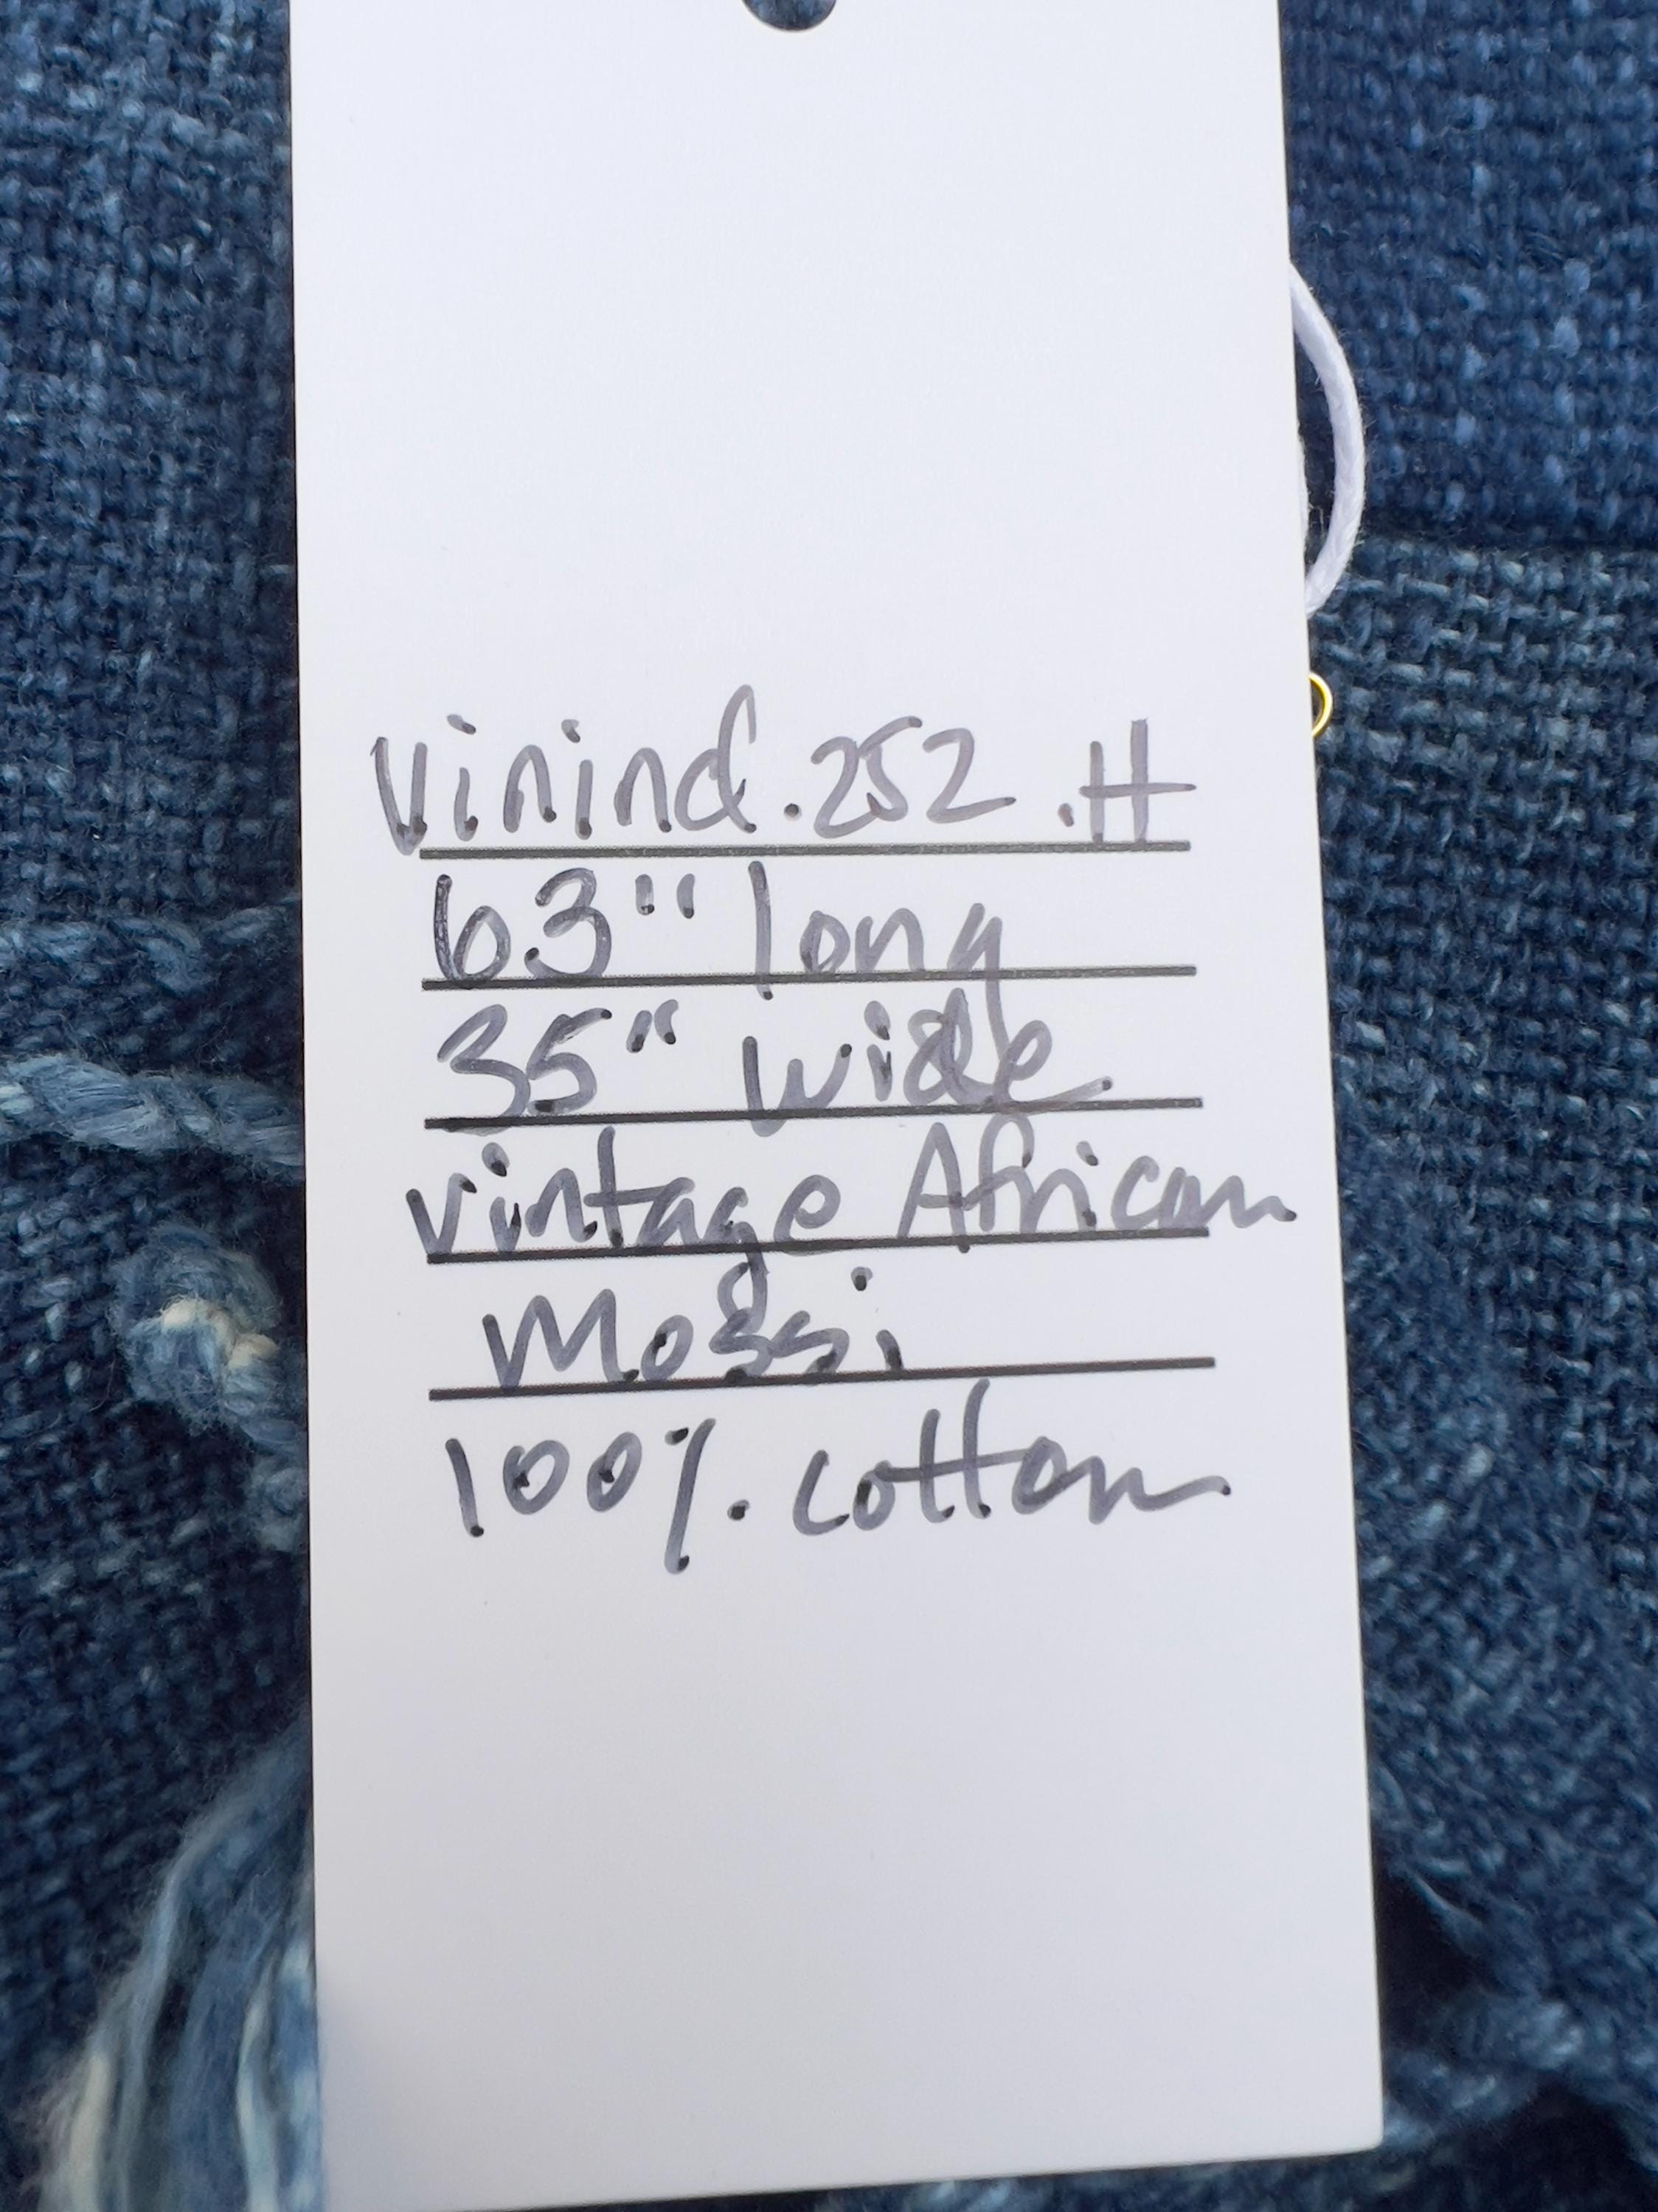 Vinind.252.H
63" long
35" wide
vintage African
Mossi
100% cotton